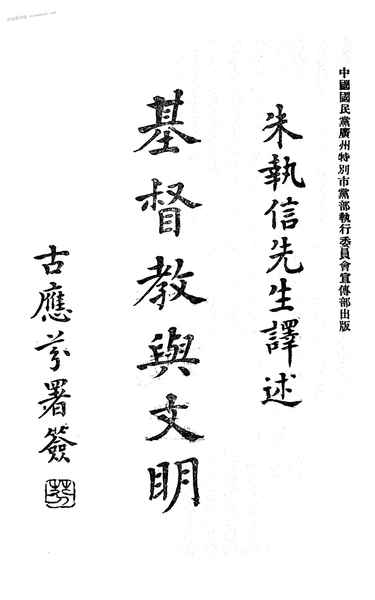 中國國民黨廣州特別市黨部執行委員會宣傳部出版
朱執信先生譯述
基督教與文明
古應芬署簽
芬